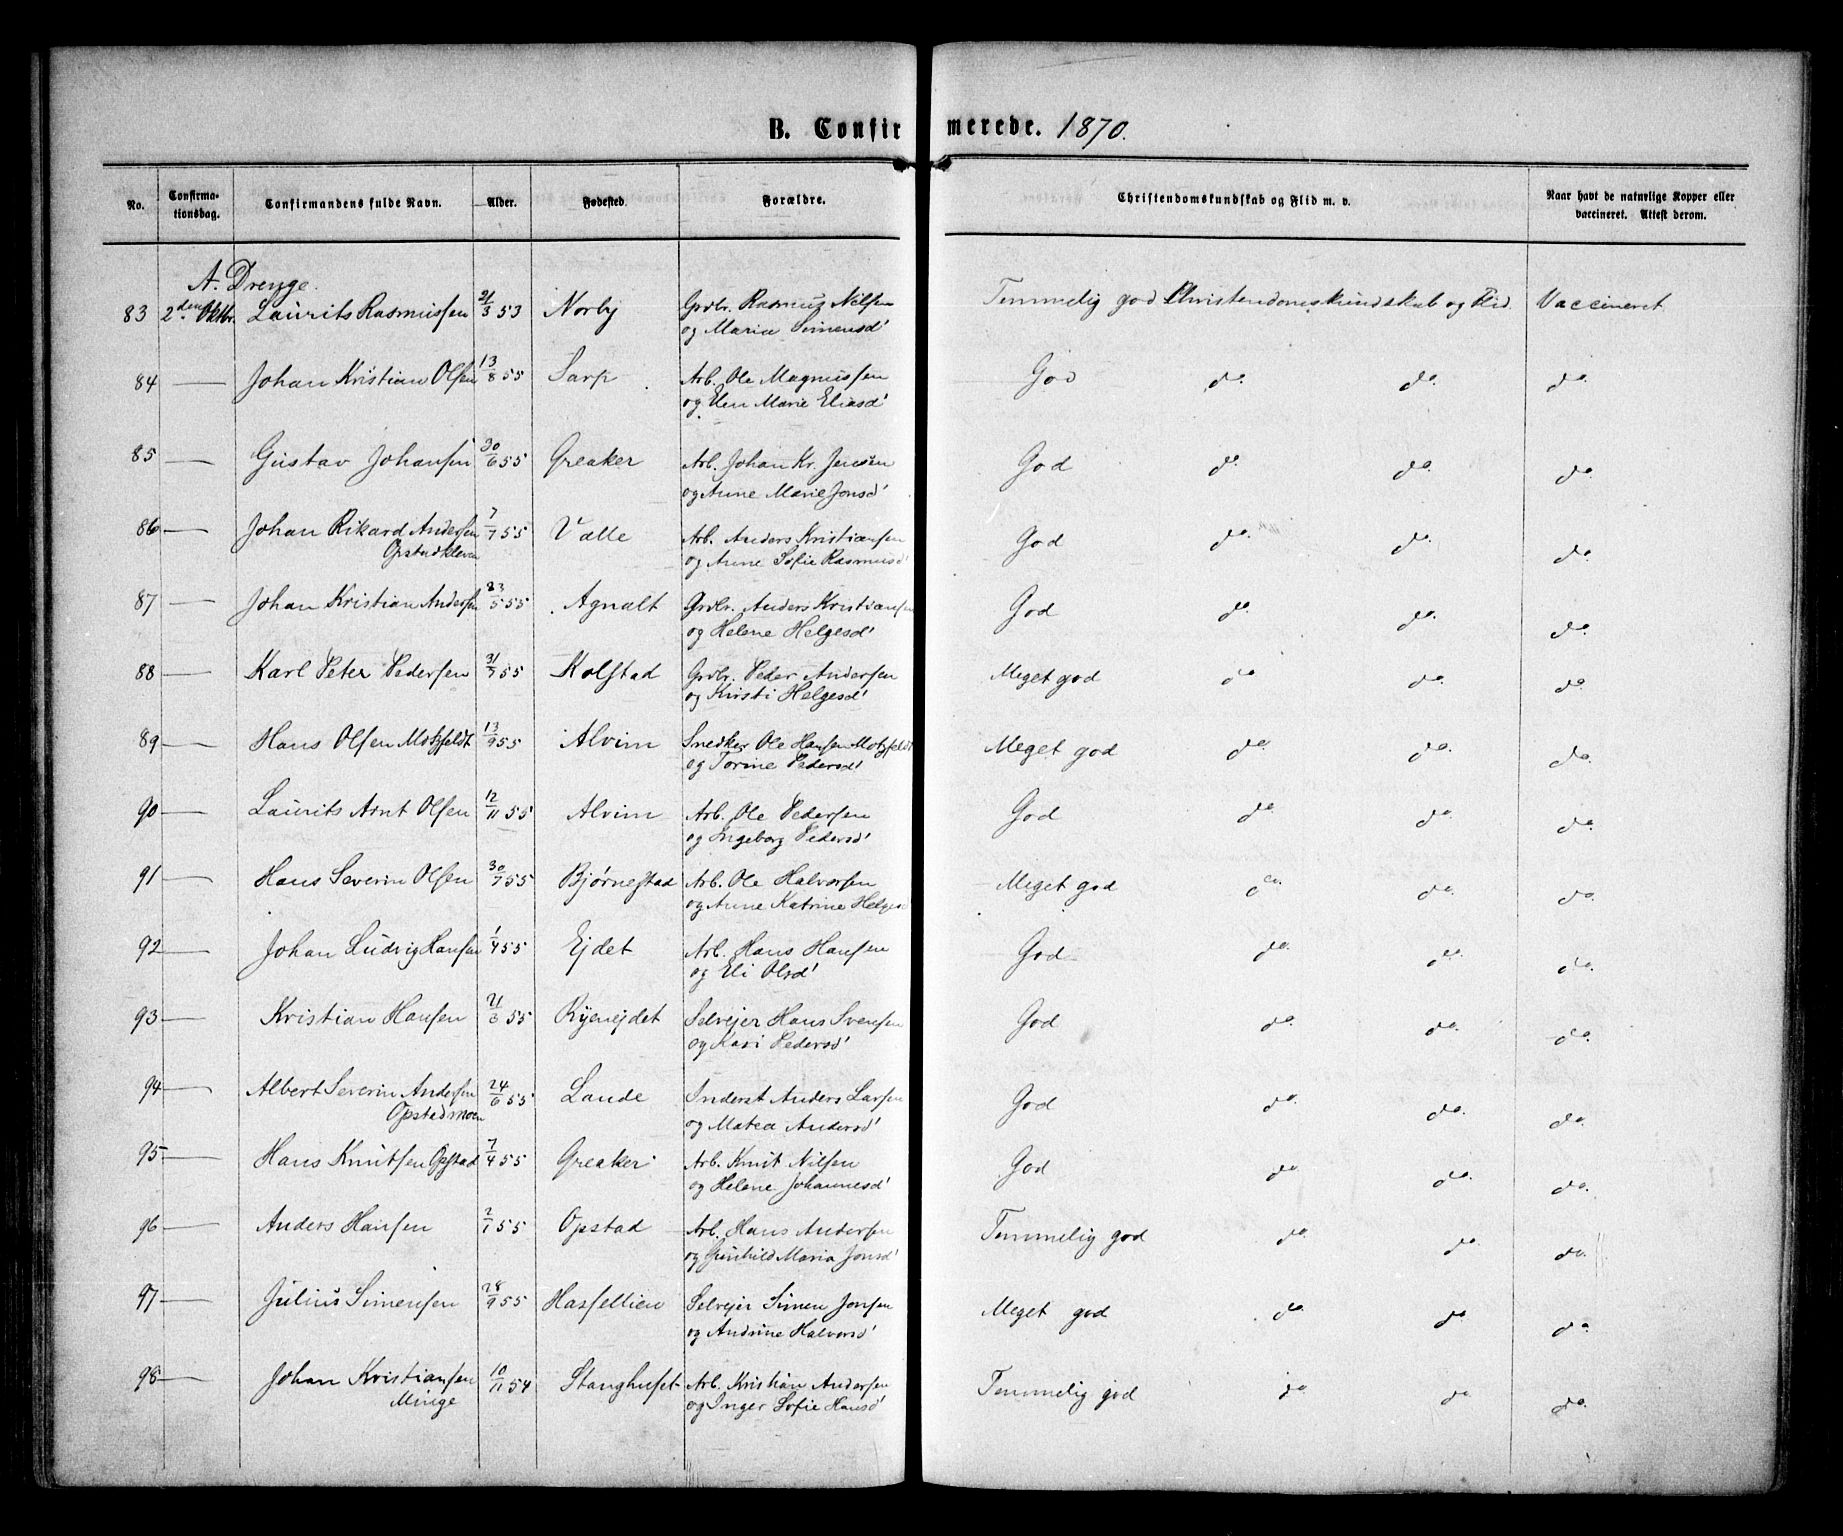 B. Confirmerede. 1870.
No. Confirmationsdag. Confirmandens fulde Navn. Alder. Fødested. Forældre. Christendomskundskab og Flid m. v. Naar havt de naturlige Kopper eller vaccineret. Attest derom.
A. Drenge.
83 2den Oktbr. Laurits Rasmussen 21/3 53 Norby Grdbr. Rasmus Nilsen Temmelig god Christendomskundskab og Flid. Vaccineret
og Maria Simensd'
84 — Johan Kristian Olsen 13/8 55 Sarp Arb. Ole Magnussen God do. do. do.
og Elen Marie Eliasd'
85 — Gustav Johansen 30/6 55 Greaker Arb. Johan Kr. Jensen God do. do. do.
og Anne Marie Jonsd'
86 — Johan Rikard Andersen 7/7 55 Valle Arb. Anders Kristiansen God do. do. do.
Opstadkleven og Anne Sofie Rasmusd'
87 — Johan Kristian Andersen 23/5 55 Agnalt Grdbr. Anders Kristiansen God do. do. do.
og Helene Helgesd'
88 — Karl Peter Pedersen 31/7 55 Kolstad Grdbr. Peder Andersen Meget god do do. do
og Kirsti Helgesd'
89 — Hans Olsen Motzfeldt 13/9 55 Alvim Snedker Ole Hansen Motzfeldt Meget god do. do. do.
og Torine Pedersd'
90 — Laurits Arnt Olsen 12/11 55 Alvim Arb. Ole Pedersen God do. do. do.
og Ingeborg Pedersd'
91 — Hans Severin Olsen 30/7 55 Bjørnestad Arb. Ole Halvorsen Meget god do. do. do.
og Anne Katrine Helgesd
92 — Johan Ludvig Hansen 1/4 55 Ejdet Arb. Hans Hansen God do. do. do.
og Eli Olsd'
93 — Kristian Hansen 21/3 55 Ryenejdet Selvejer Hans Svensen God do. do. do.
og Kari Pedersd'
94 — Albert Severin Andersen 24/6 55 Lande Inderst Anders Larsen God do. do. do.
Opstadmoen og Matea Andersd'
95 — Hans Knutsen Opstad 7/4 55 Greaker Arb. Knut Nilsen God do. do. do.
og Helene Johannesd'
96 — Anders Hansen 2/1 55 Opstad Arb. Hans Andersen Temmelig god do. do. do.
og Gunhild Maria Jonsd'
97 — Julius Simensen 28/9 55 Hasfellien Selvejer Simen Jonsen Meget god do. do do
og Andrine Halvorsd'
98 — Johan Kristiansen 10/11 54 Stanghuset Arb. Kristian Andersen Temmelig god do do do.
Minge og Inger Sofie Hansd'